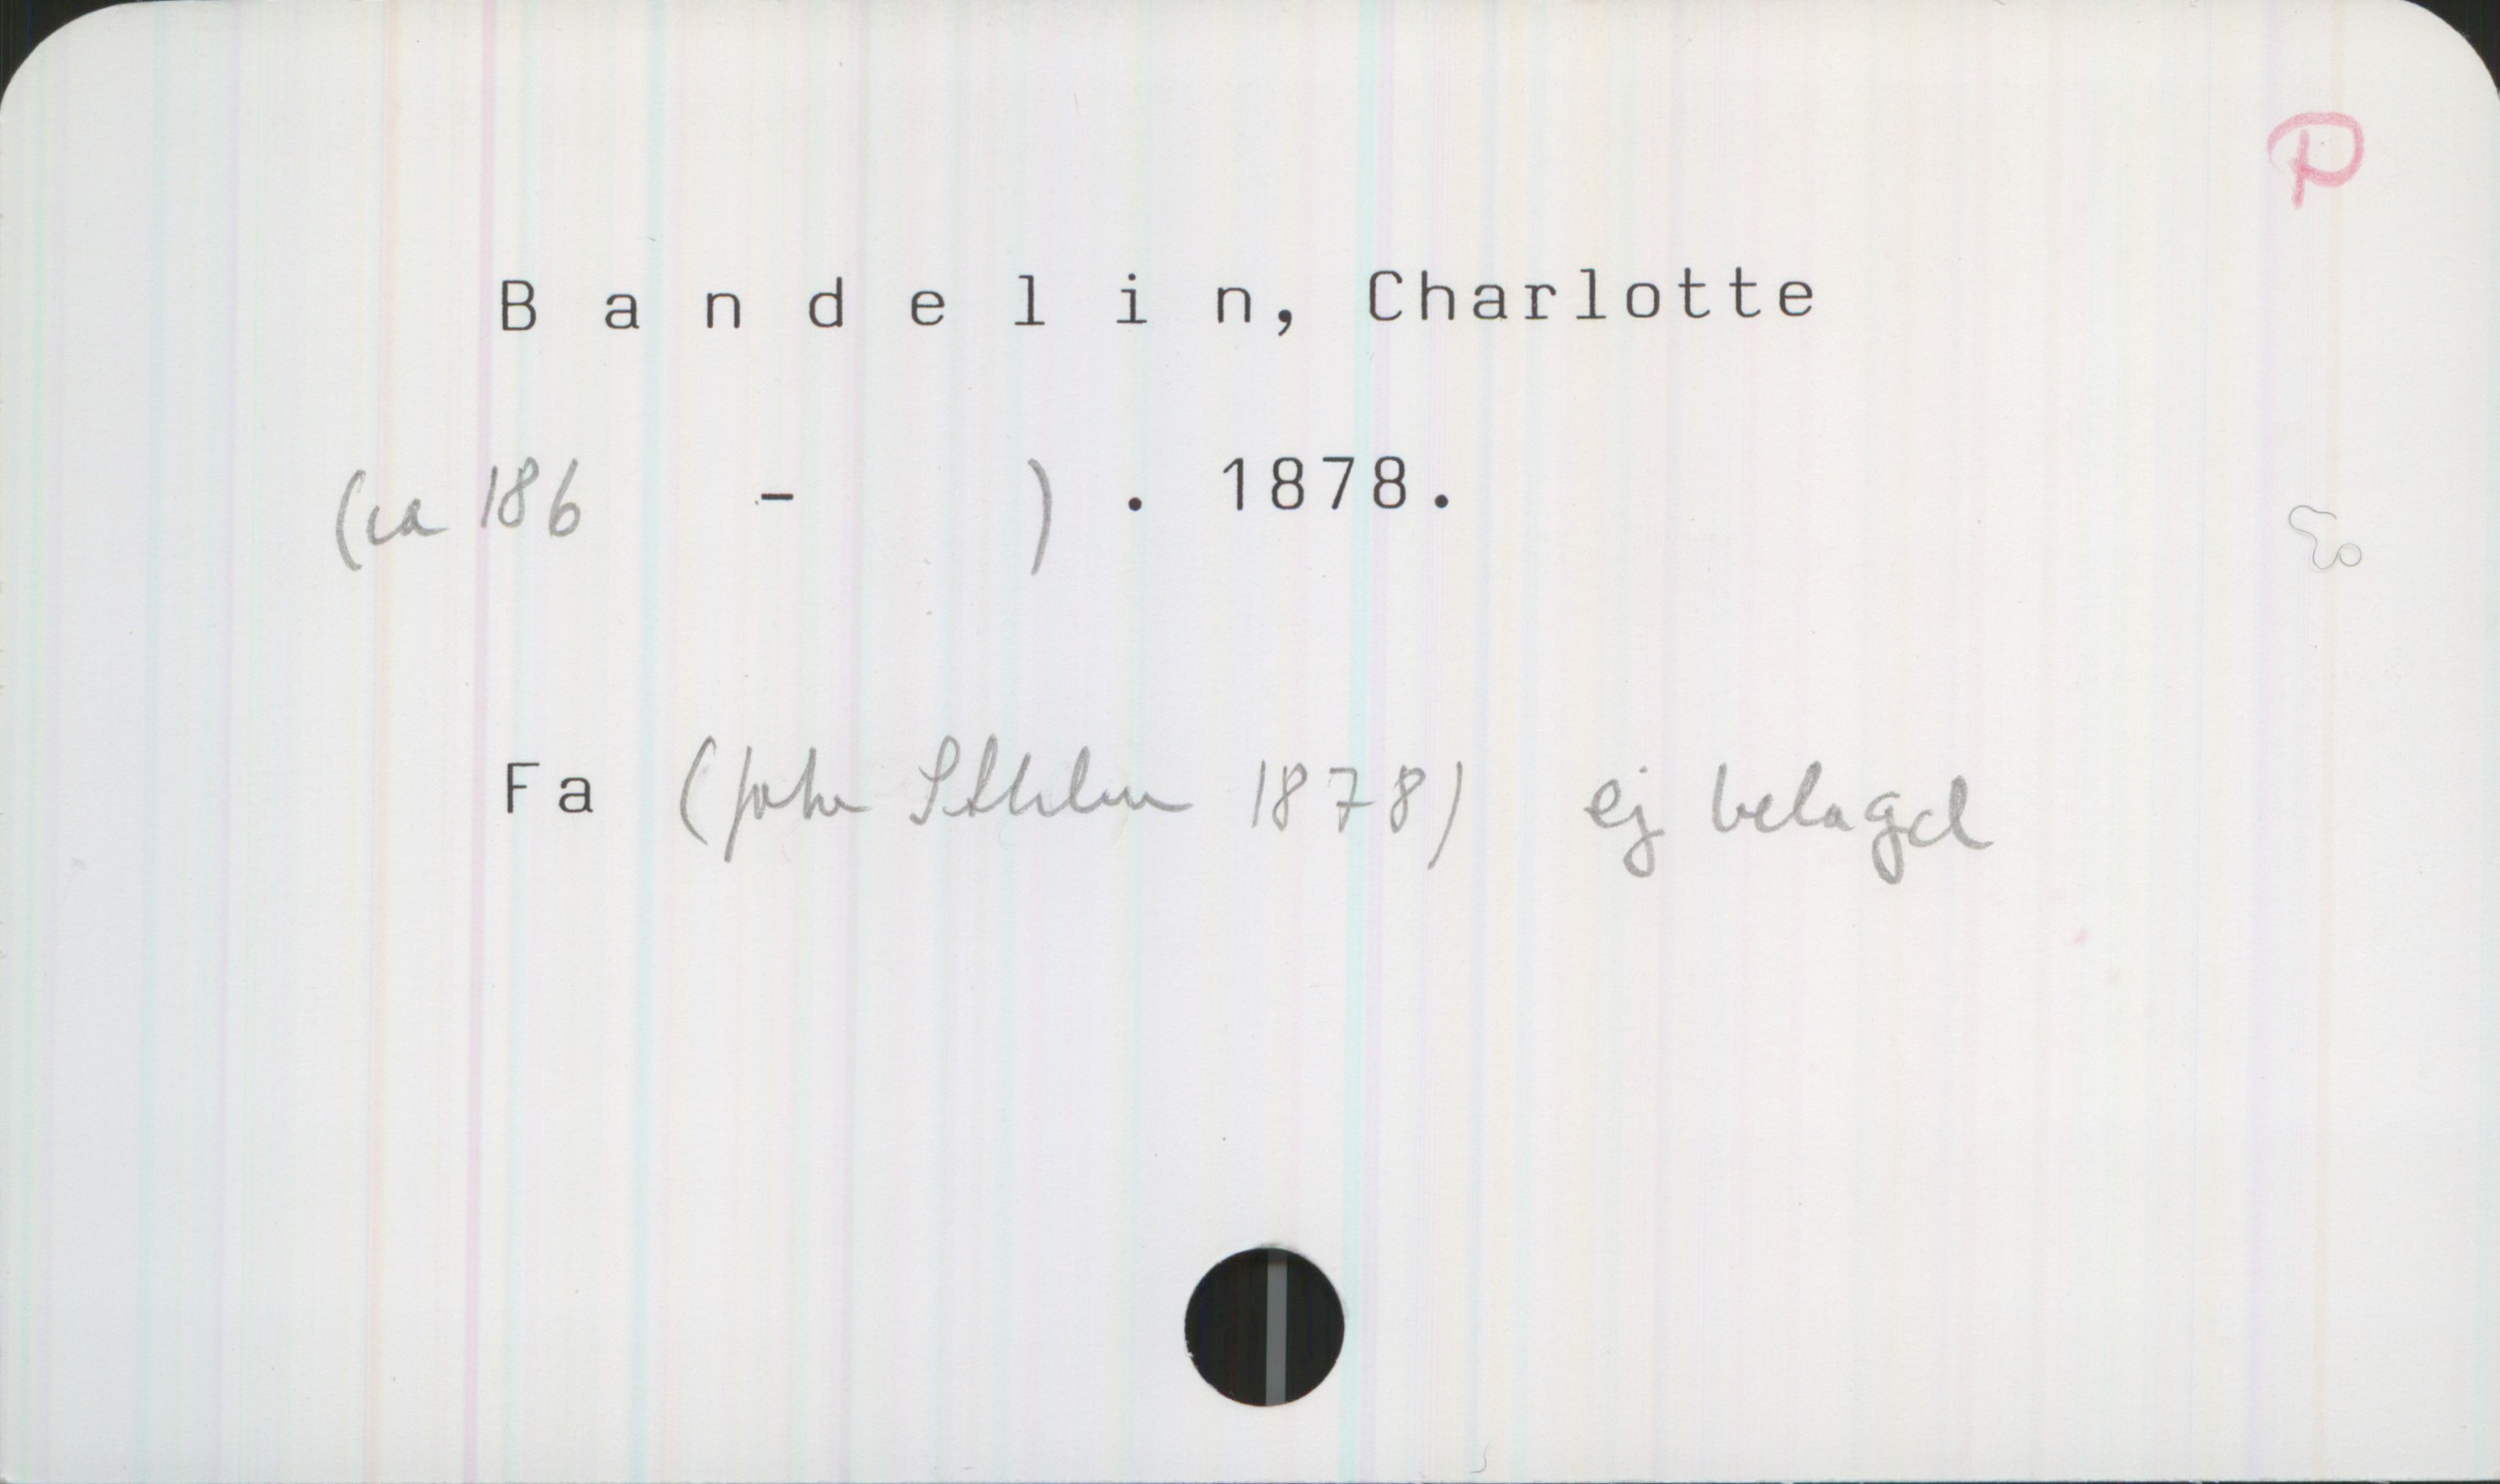 P
B a n d e l i n, Charlotte
(ca 186 - ) . 1878.
Fa ( 1878) ej belagd